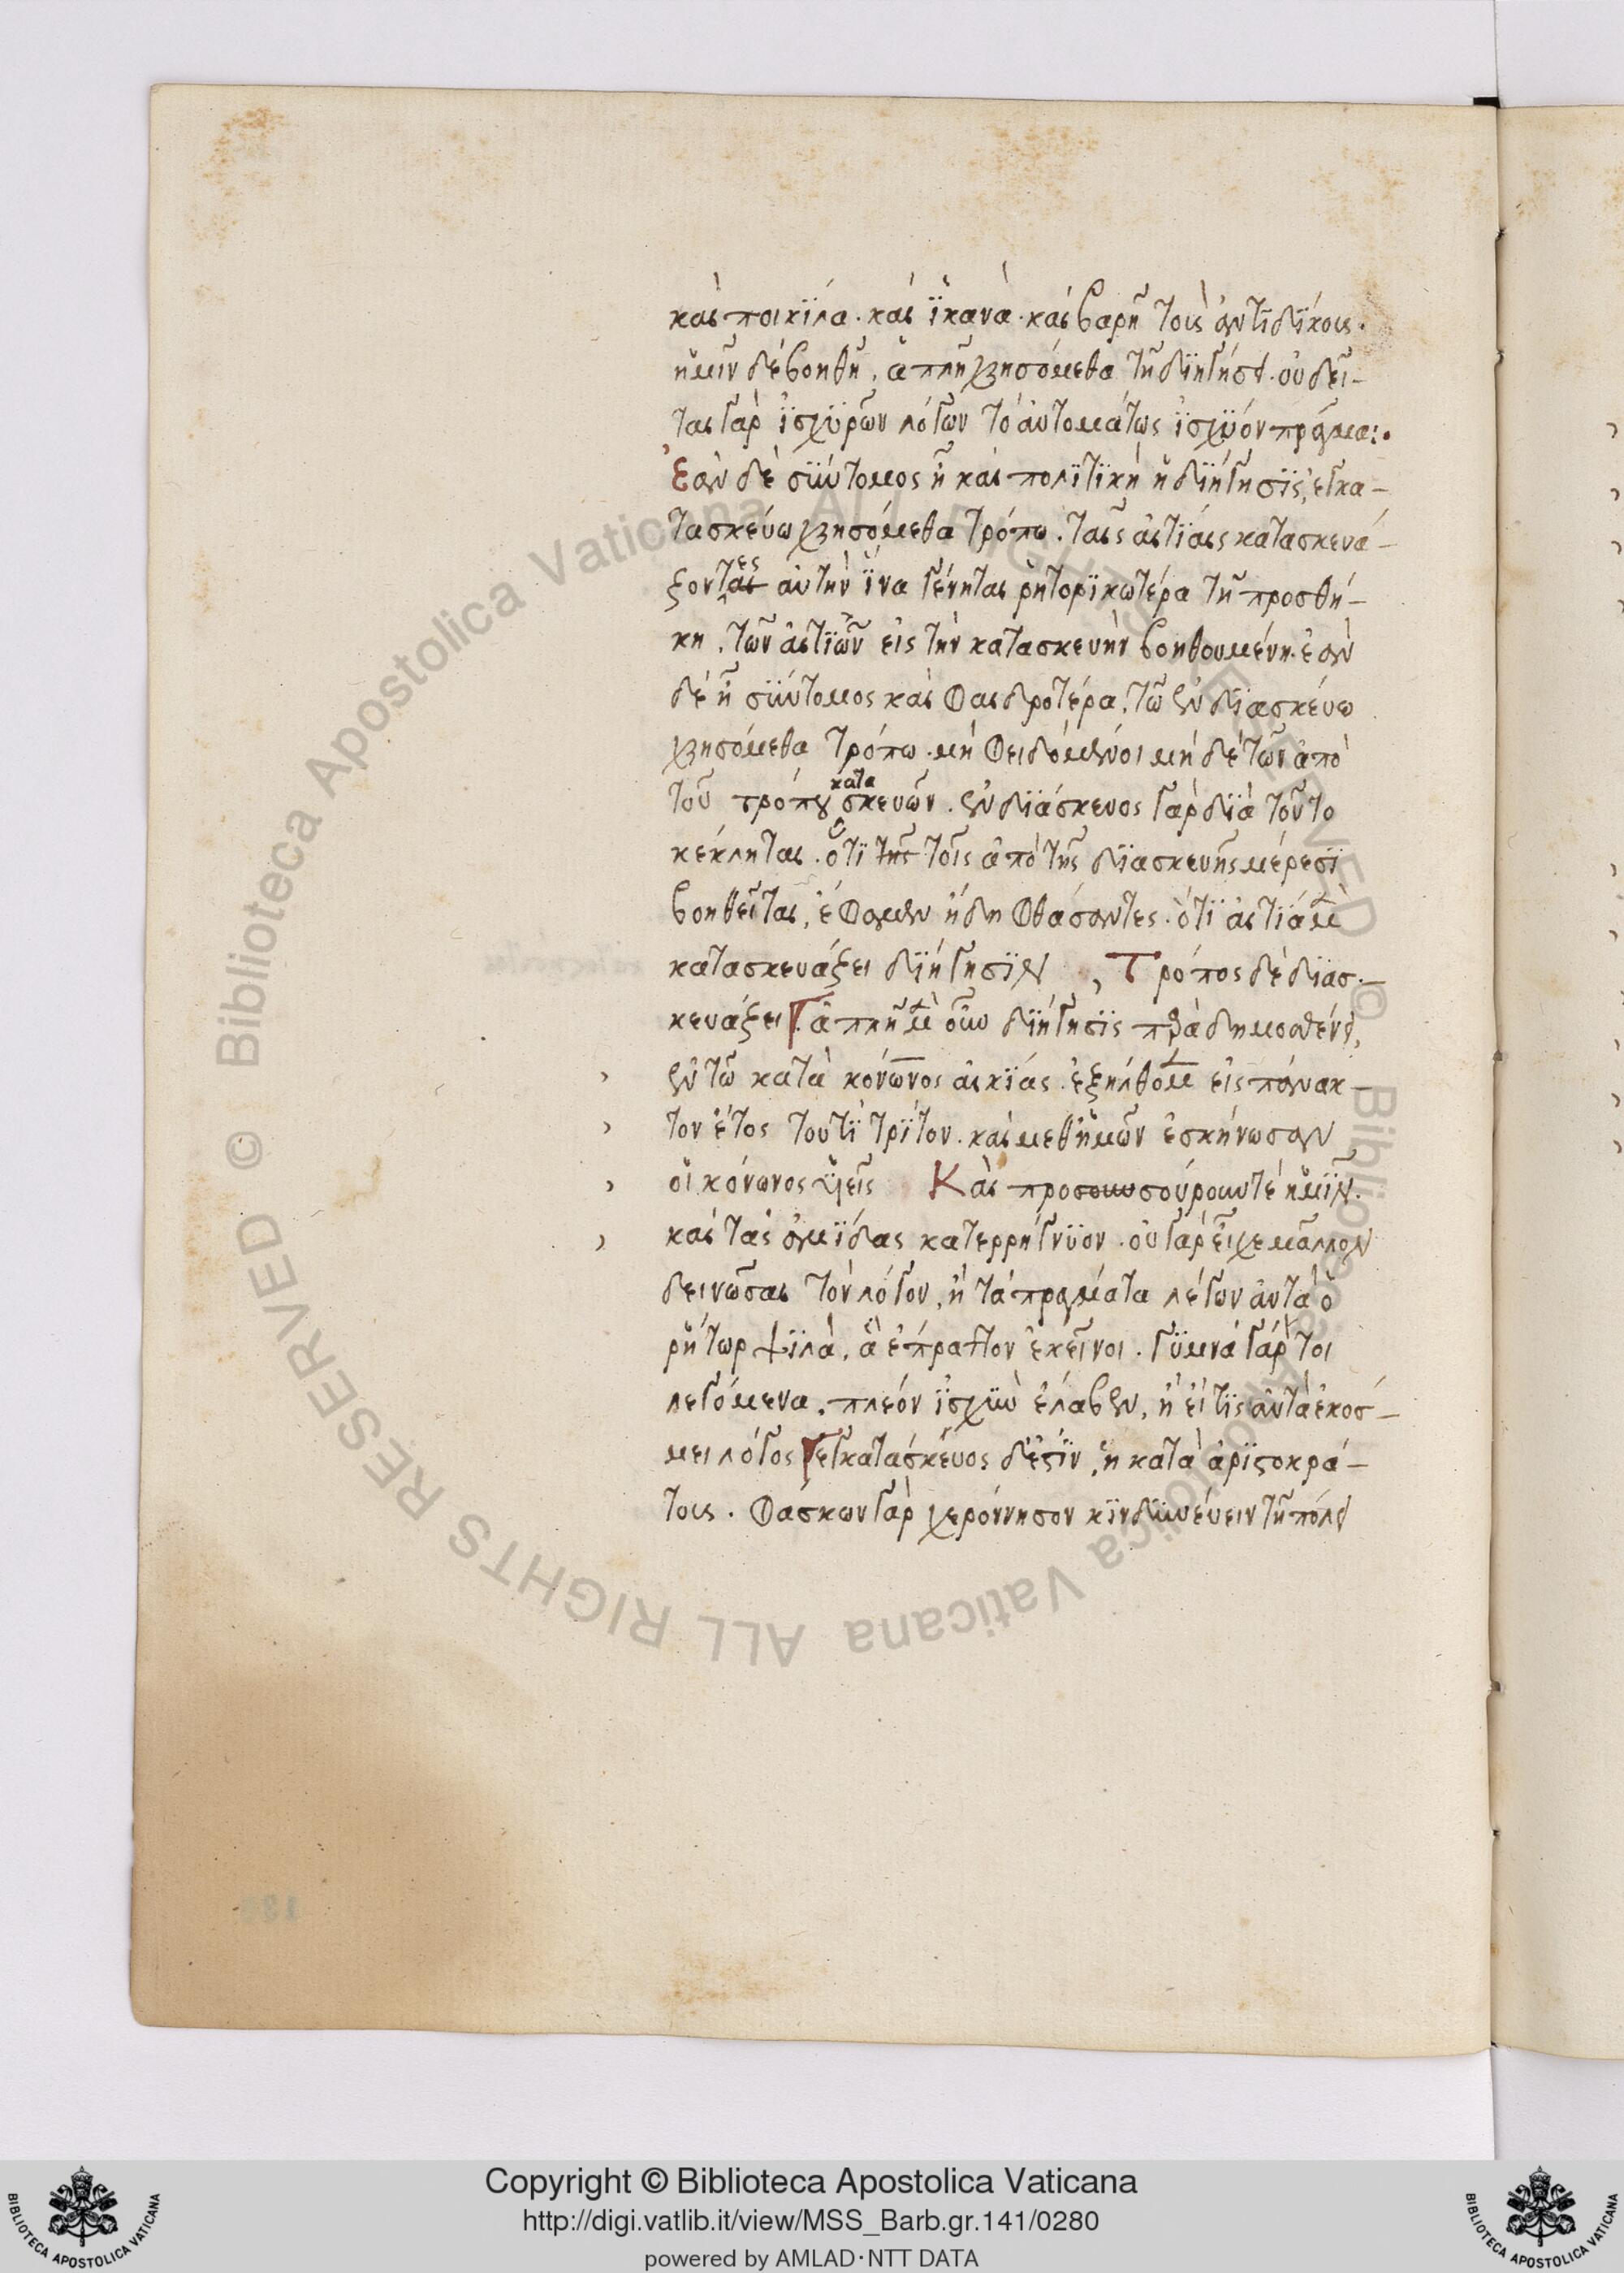 καὶ ποικίλα. καὶ ἱκανὰ. καὶ βαρῆ τοὶς ἀντιδίκοις.
ἡμῖν δὲ βοηθῆ, ἁπλῆ χρησόμεθα τῆ διηγήσει. οὐ δεῖ-
ται γὰρ ἰσχυρῶν λόγων τὸ αὐτομάτως ἰσχύον πρᾶγμα:.
Ἐὰν δὲ σύντομος ῆ καὶ πολιτικὴ ἡ διήγησις, ἐγκα-
τασκεύω χρησόμεθα τρόπω. ταῖς αἰτίαις κατασκευά-
ζοντες αὐτὴν ἵνα γένηται ῥητορικωτέρα τῆ προσθή-
κη, τῶν αἰτιῶν εἰς τὴν κατασκευὴν βοηθουμένη. ἐὰν
δὲ ῆ σύντομος καὶ φαιδροτέρα, τῶ ἐνδιασκεύω
χρησόμεθα τρόπω. μὴ φειδόμενοι μὴ δὲ τῶν ἀπὸ
τοῦ τρόπου κατασκευῶν. ἐνδιάσκευος γὰρ διὰ τοῦτο
κέκληται. ὅτι τῆς τοῖς ἀπὸ τῆς διασκευῆς μέρεσι
βοηθεῖται, ἔφαμεν ἤδη φθάσαντες. ὅτι αἰτία μὲν
κατασκευάζει διήγησιν, Τρόπος δὲ διασ-
κευάζει. ἁπλῆ μὲν οὖν διήγησις παρὰ δημοσθένει,
ἐν τῶ κατὰ κόνωνος αἰκίας. ἐξήλθομεν εἰς πάνακ-
τον ἔτος τουτὶ τρίτον. καὶ μεθ' ἡμῶν ἐσκήνωσαν
οἱ κόνωνος ὑεῖς Καὶ προσουνσούρουντε ἡμῖν.
καὶ τὰς ἀμίδας κατερρήγνυον. οὐ γὰρ εἶχε μᾶλλον
δεινῶσαι τὸν λόγον, ἢ τὰ πράγματα λέγων αὐτὰ ὁ
ῥήτωρ ψιλὰ, ἃ ἔπραττον ἐκεῖνοι. γυμνὰ γάρ τοι
λεγόμενα, πλέον ἰσχὺν ἔλαβεν, ἢ εἴ τις αὐτὰ ἐκόσ-
μει λόγος ἐγκατάσκευος δέ ἐστιν, ἡ κατὰ ἀριστοκρά-
τους. φάσκων γὰρ χερόννησον κινδυνεύειν τῆ πόλει
Copyright © Biblioteca Apostolica Vaticana
http://digi.vatlib.it/view/MSS_Barb.gr.141/0280
powered by AMLAD·NTT DATA
BIBLIOTECA APOSTOLICA VATICANA
BIBLIOTECA APOSTOLICA VATICANA
© Biblioteca Apostolica Vaticana ALL RIGHTS RESERVED © Biblioteca Apostolica Vaticana ALL RIGHTS RESERVED